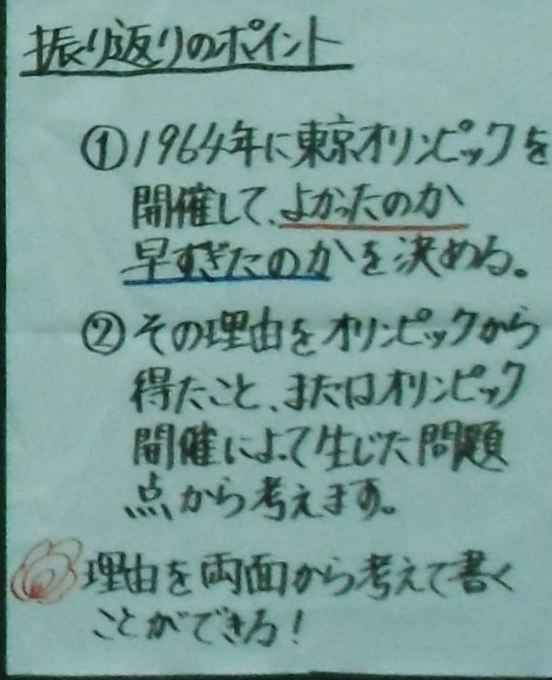 振り返りのポイント
①1964年に東京オリンピックを
開催して、よかったのか
早すぎたのかを決める。
②その理由をオリンピックから
得たこと、またはオリンピック
開催によって生じた問題
点から考えます。
理由を両面から考えて書く
ことができる!